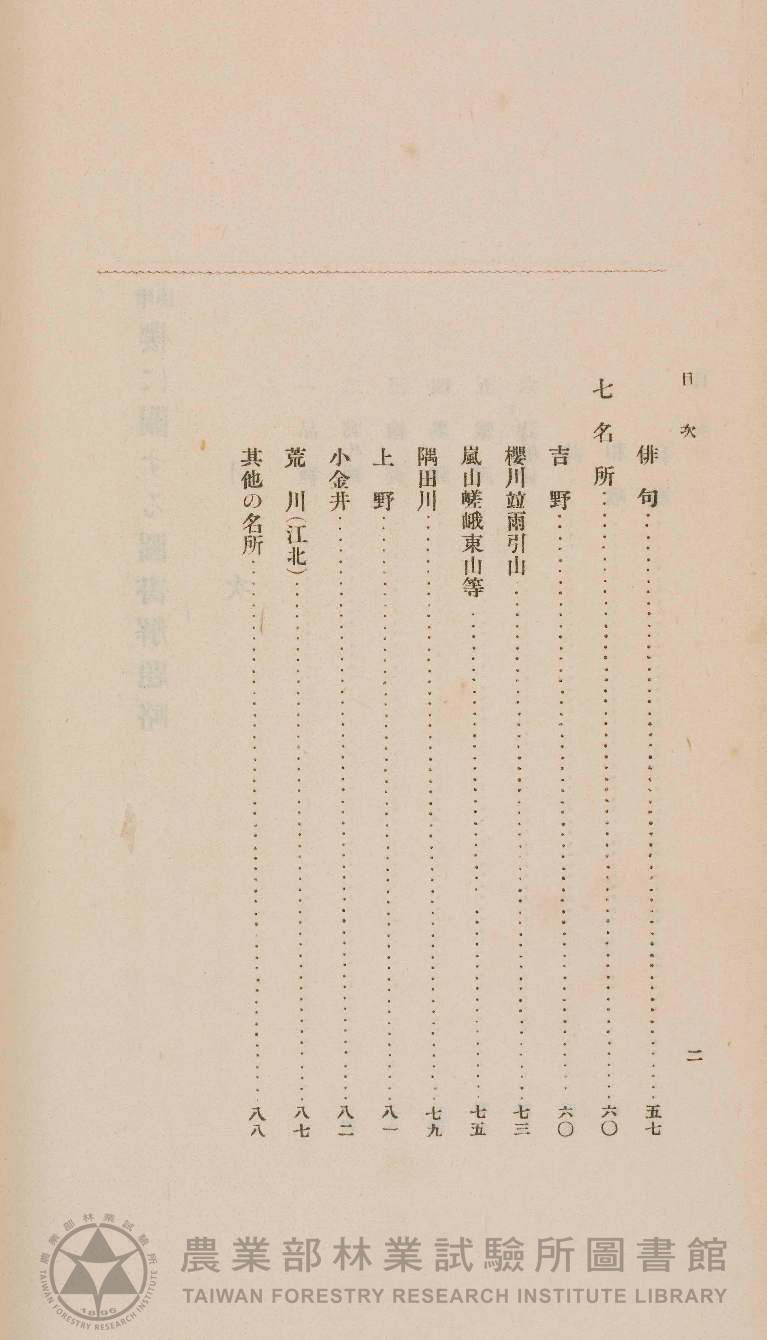 目次
二
俳句……五七
七 名所……六〇
吉野……六〇
櫻川竝雨引山……七三
嵐山嵯峨東山等……七五
隅田川……七九
上野……八一
小金井……八二
荒川(江北)……八七
其他の名所……八八
農業部林業試驗所
TAIWAN FORESTRY RESEARCH INSTITUTE
1896
農業部林業試驗所圖書館
TAIWAN FORESTRY RESEARCH INSTITUTE LIBRARY